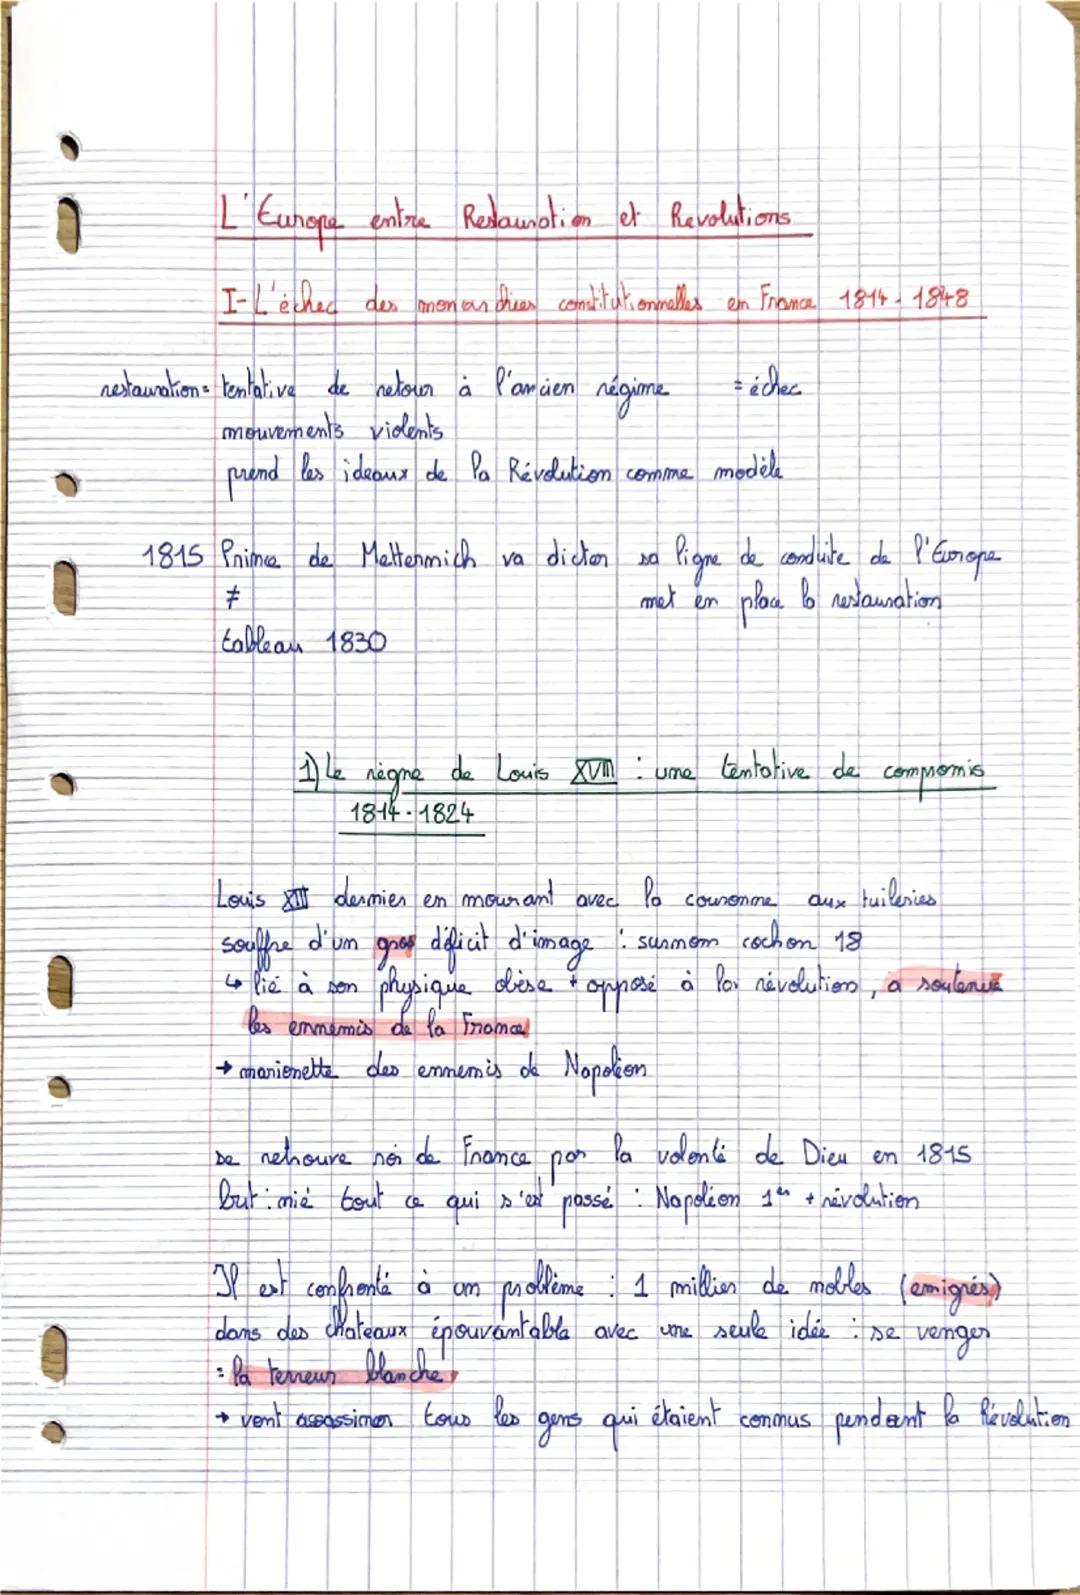 L'Europe entre Restauration et Revolutions
I- L'échec des monarchies constitutionnelles en France 1814 - 1848
restauration = tentative de retour à l'ancien régime = échec
mouvements violents
prend les ideaux de la Révolution comme modèle
1815 Prince de Metternich va dicter sa ligne de conduite de l'Europe
≠ met en place la restauration
tableau 1830
1) Le règne de Louis XVIII : une tentative de compromis
1814 - 1824
Louis XIII dernier en mourant avec la couronne aux tuileries
souffre d'un gros déficit d'image : surnom cochon 18
↳ lié à son physique obèse + opposé à la révolution, a soutenue
les ennemis de la France
→ marionette des ennemis de Napoléon
se retrouve roi de France par la volonté de Dieu en 1815
but : nié tout ce qui s'est passé : Napoléon 1er + révolution
Il est confronté à un problème : 1 millier de nobles (emigrés)
dans des chateaux épouvantable avec une seule idée : se venger
= la terreur blanche
→ vont assassiner tous les gens qui étaient connus pendant la Révolution